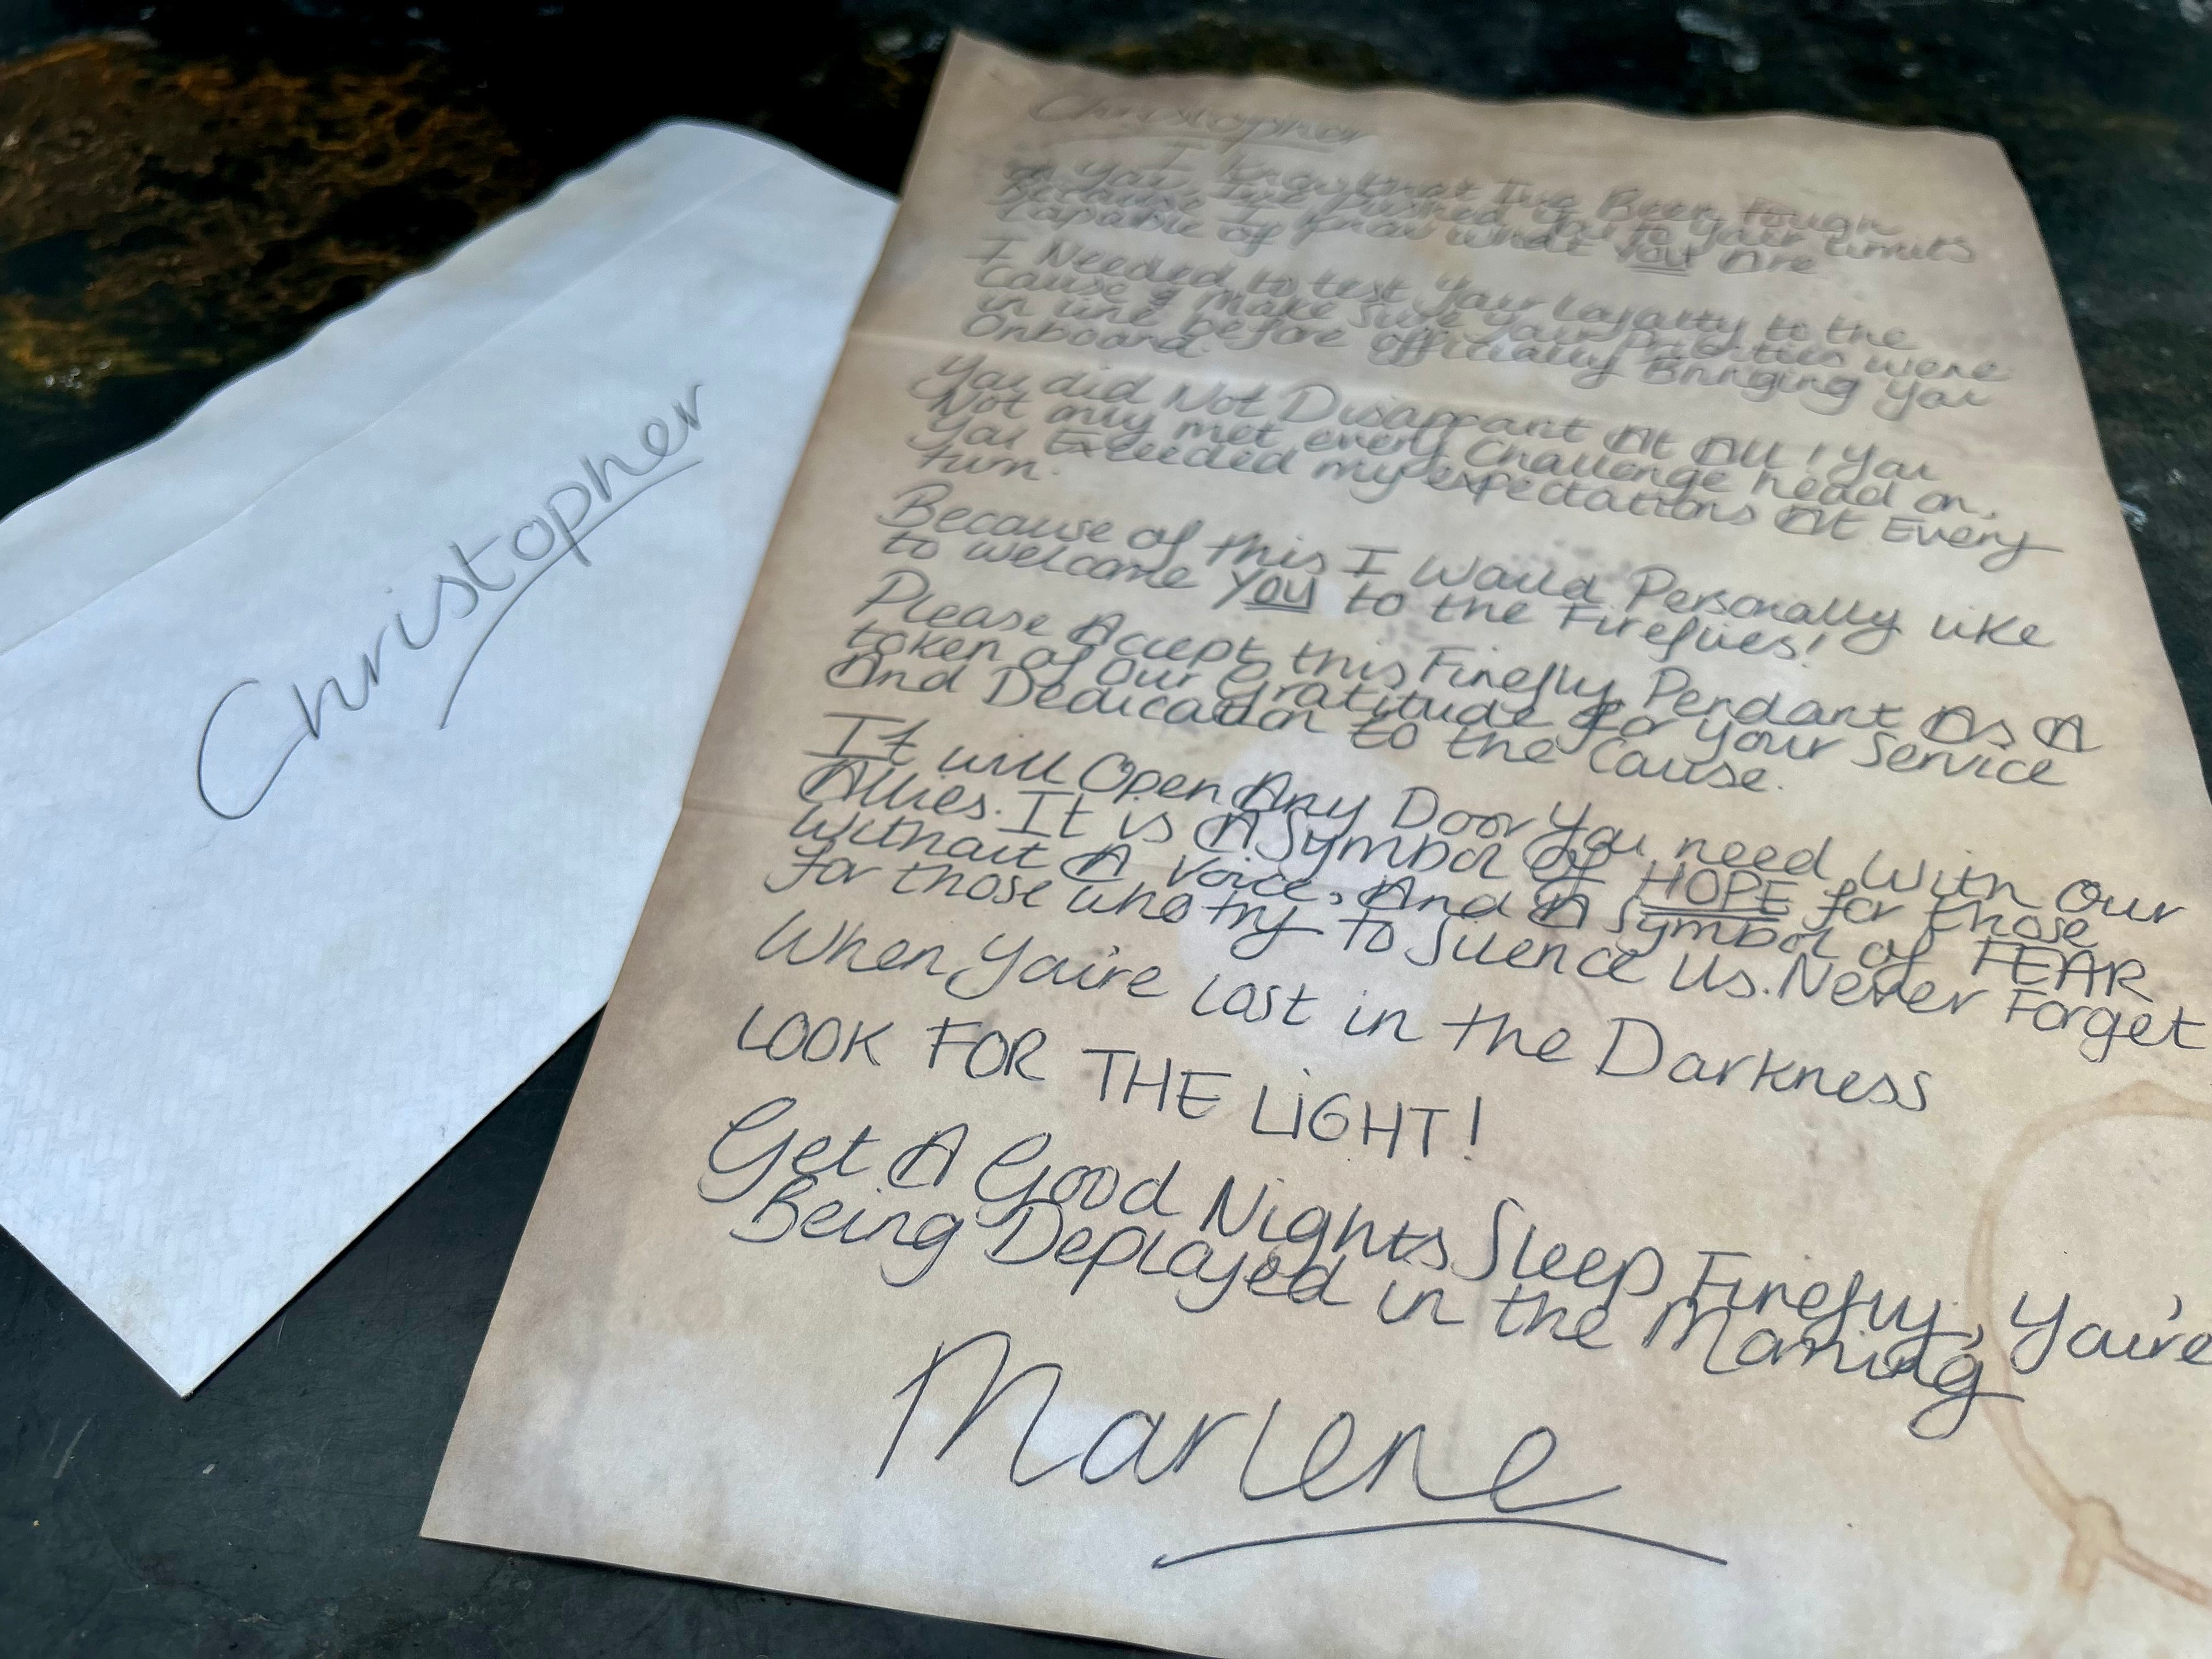 Christopher
Christopher
I know that I've Been tough
on you, I've pushed you to your limits
Because I know what you Are
Capable of
I Needed to test your Loyalty to the
Cause & make sure your Priorities were
in line before officially Bringing you
Onboard.
You did Not Disappoint At All! You
Not only met every Challenge head on,
you Exceeded my expectations At Every
turn.
Because of this I Would Personally like
to welcome you to the Fireflies!
Please Accept this Firefly Pendant As A
token of Our Gratitude for your Service
And Dedication to the Cause.
It will Open Any Door You need With Our
Allies. It is A Symbol of HOPE for those
without A Voice, And A Symbol of FEAR
for those who try to Silence Us. Never Forget
When You're Lost in the Darkness
LOOK FOR THE LiGHT!
Get A Good Nights Sleep Firefly, You're
Being Deployed in the Morning
Marlene